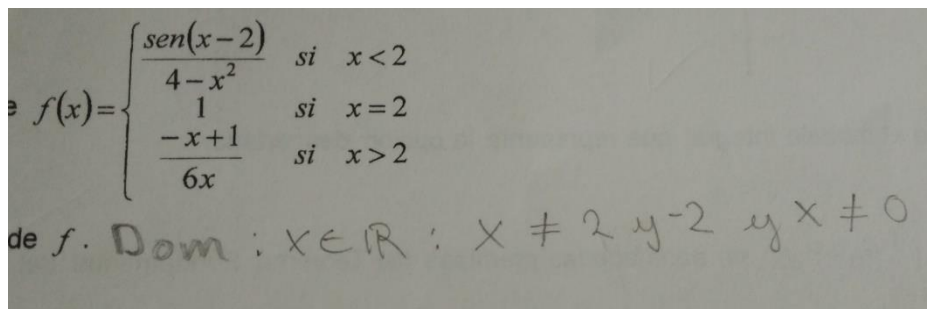 sen(x-2)
4-x² si x<2
e f(x)= 1 si x=2
-x+1
6x si x>2
de f. Dom: x∈ℝ: x≠2 y -2 y x≠0